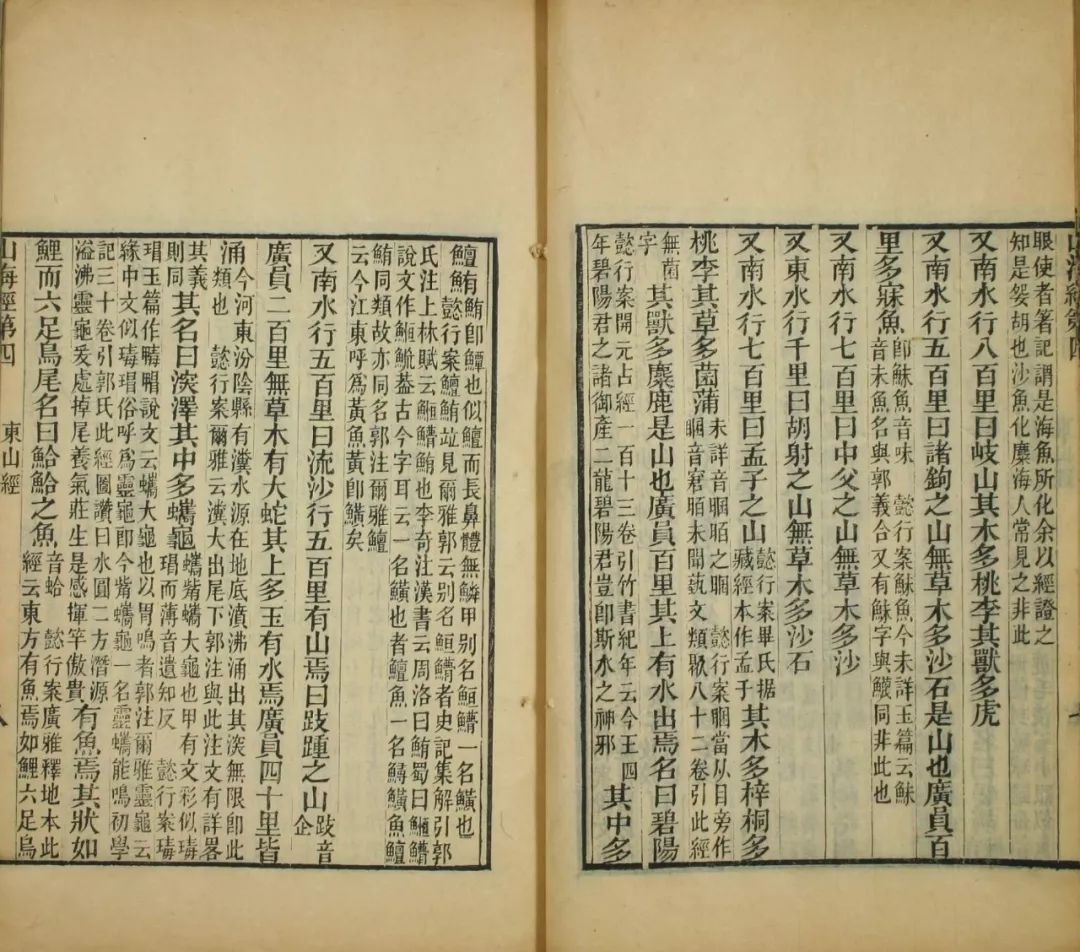 眼使者箸記謂是海魚所化余以經證之
知是妴胡也沙魚化麋海人常見之非此
又南水行八百里曰岐山其木多桃李其獸多虎
又南水行五百里曰諸鉤之山無草木多沙石是山也廣員百
里多寐魚
卽鮇魚音味 懿行案鮇魚今未詳玉篇云鮇
音未魚名與郭義合又有字與同非此也
又南水行七百里曰中父之山無草木多沙
又東水行千里曰胡射之山無草木多沙石
又南水行七百里曰孟子之山
懿行案畢氏据
藏經本作孟于
其木多梓桐多
桃李其草多菌蒲
未詳音睏之睏 懿行案睏當从目旁作
睏音窘未聞蓺文類聚八十二卷引此經
無菌
字
其獸多麋鹿是山也廣員百里其上有水出焉名曰碧陽
懿行案開元占經一百十三卷引竹書紀年云今王四
年碧陽君之諸御產二龍碧陽君豈卽斯水之神邪
其中多
鱣鮪
卽鱏也似鱣而長鼻體無鱗甲別名䱭䲛一名鱑也
懿行案鱣鮪竝見爾雅郭云別名䱭䲛者史記集解引郭
氏注上林賦云䱭䲛鮪也李奇注漢書云周洛曰鮪蜀曰䱭䲛
說文作䱭䲛葢古今字耳云一名鱑也者鱣魚一名鱘鱑魚鱣
鮪同類故亦同名郭注爾雅鱣
云今江東呼爲黃魚黃卽鱑矣
又南水行五百里曰流沙行五百里有山焉曰跂踵之山
跂音
企
廣員二百里無草木有大蛇其上多玉有水焉廣員四十里皆
涌
今河東汾陰縣有瀵水源在地底濆沸涌出其深無限卽此
類也 懿行案爾雅云瀵大出尾下郭注與此注文有詳畧
其義
則同
其名曰深澤其中多蠵龜
蠵觜蠵大龜也甲有文彩似瑇
瑁而薄音遺知反 懿行案瑇
瑁玉篇作說文云蠵大龜也以胃鳴者郭注爾雅靈龜云
緣中文似瑇瑁俗呼爲靈龜卽今觜蠵龜一名靈蠵能鳴初學
記三十卷引郭氏此經圖讚曰水圓二方潛源
溢沸靈龜爰處掉尾養氣莊生是感揮竿傲貴
有魚焉其狀如
鯉而六足鳥尾名曰鮯鮯之魚
音蛤 懿行案廣雅釋地本此
經云東方有魚焉如鯉六足鳥
山海經第四 東山經 八